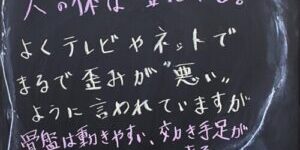 人の体は
よくテレビやネットで
まるで歪みが〝悪い〟
ように言われていますが
骨盤は動きやすい、効き手足が